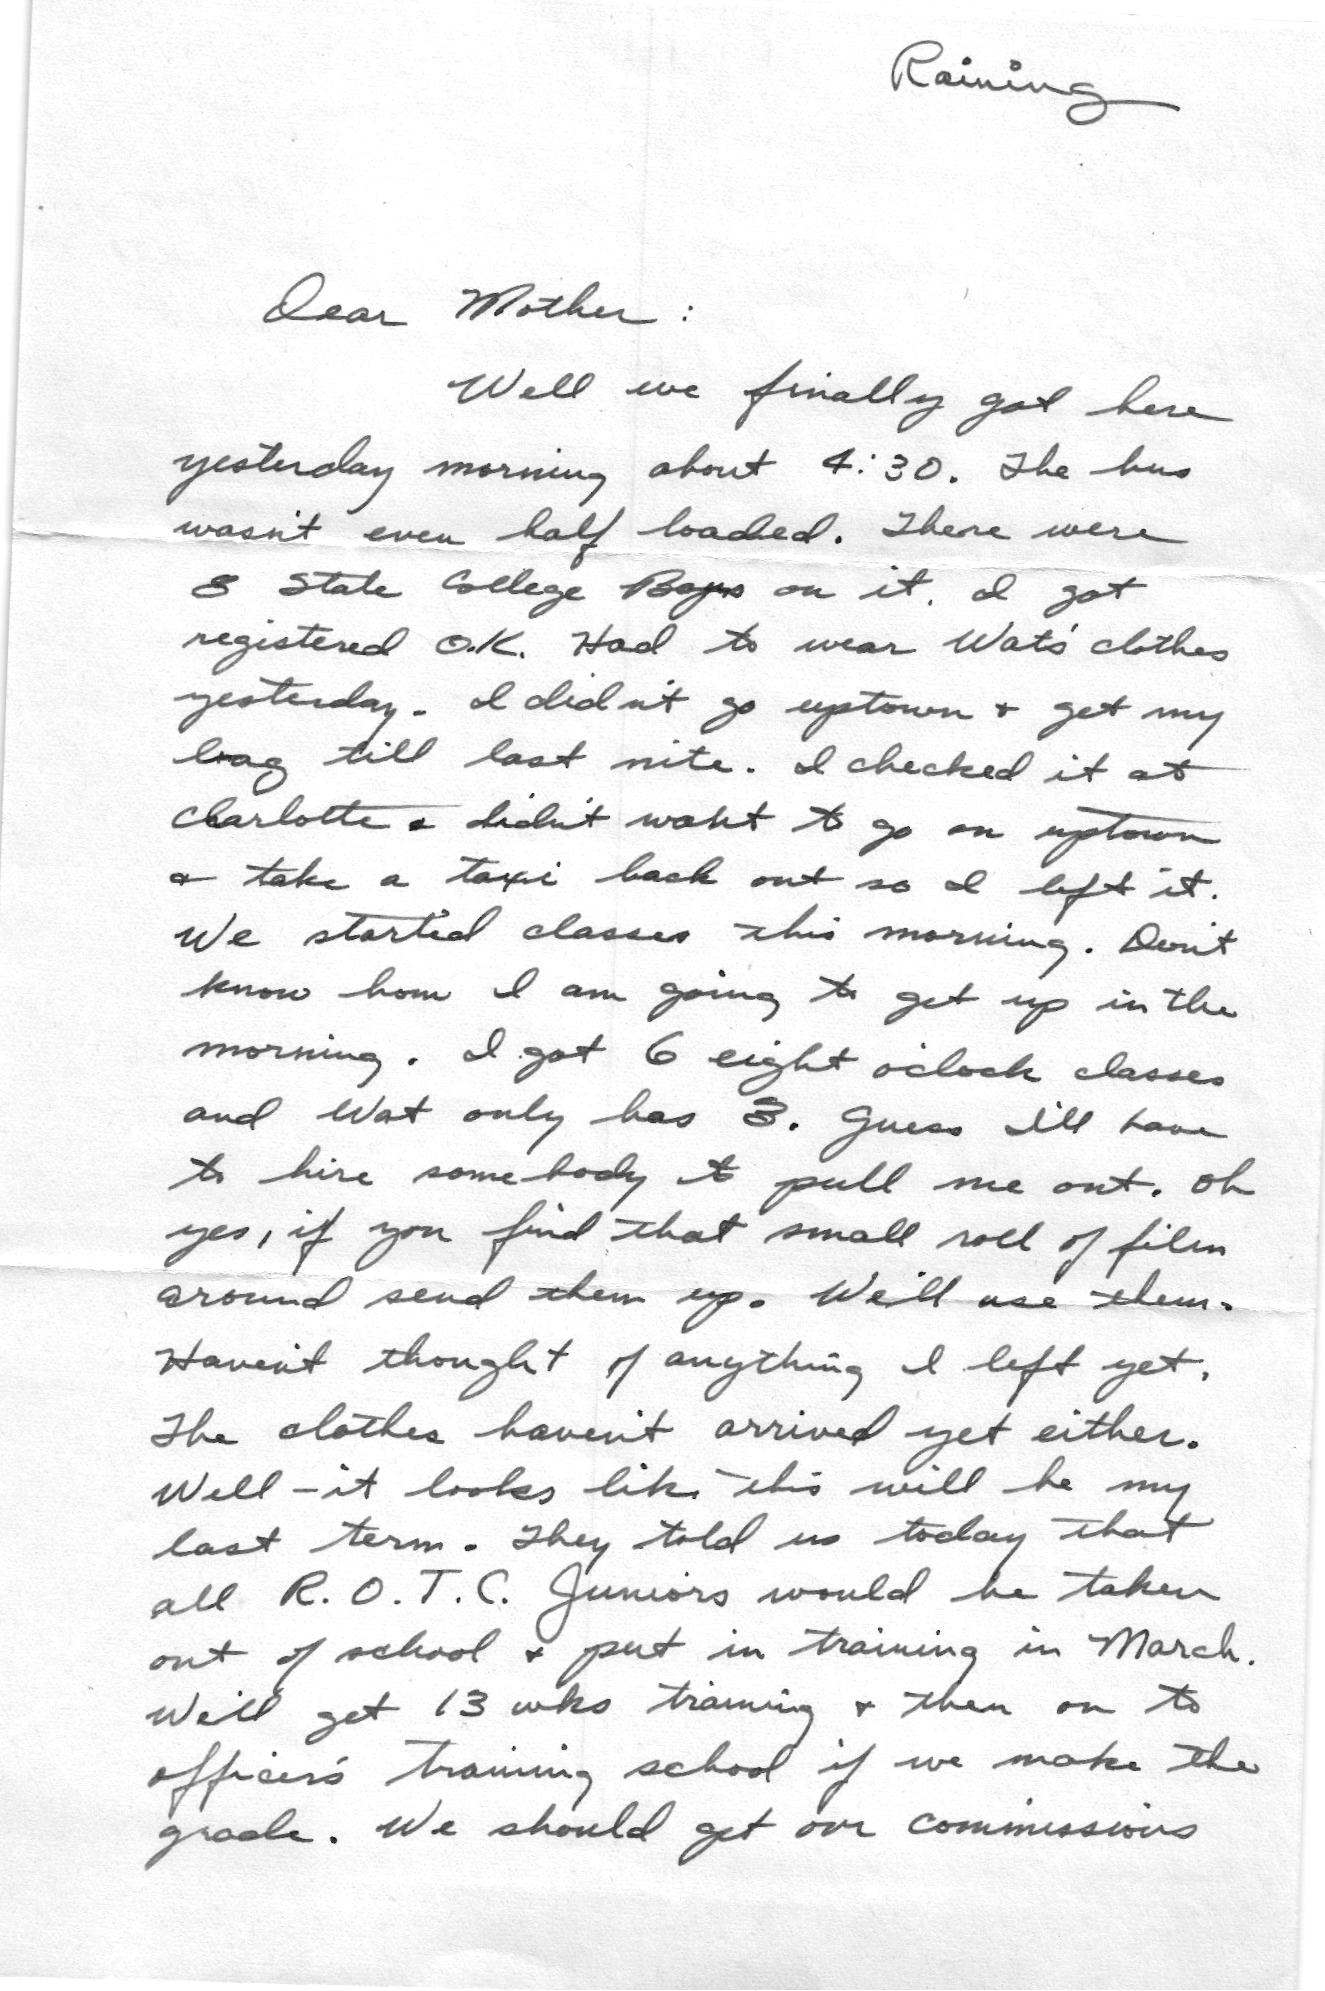 Raining
Dear Mother :
Well we finally got here
yesterday morning about 4:30. The bus
wasn't even half loaded. There were
8 State College Boys on it. I got
registered O.K. Had to wear Wats' clothes
yesterday. I didn't go uptown + get my
bag till last nite. I checked it at
Charlotte & didn't want to go on uptown
+ take a taxi back out so I left it.
We started classes this morning. Don't
know how I am going to get up in the
morning. I got 6 eight o'clock classes
and Wat only has 3. Guess I'll have
to hire somebody to pull me out. Oh
yes, if you find that small roll of film
around send them up. We'll use them.
Haven't thought of anything I left yet.
The clothes haven't arrived yet either.
Well - it looks like this will be my
last term. They told us today that
all R.O.T.C. Juniors would be taken
out of school + put in training in March.
We'll get 13 wks training + then on to
officer's training school if we make the
grade. We should get our commissions